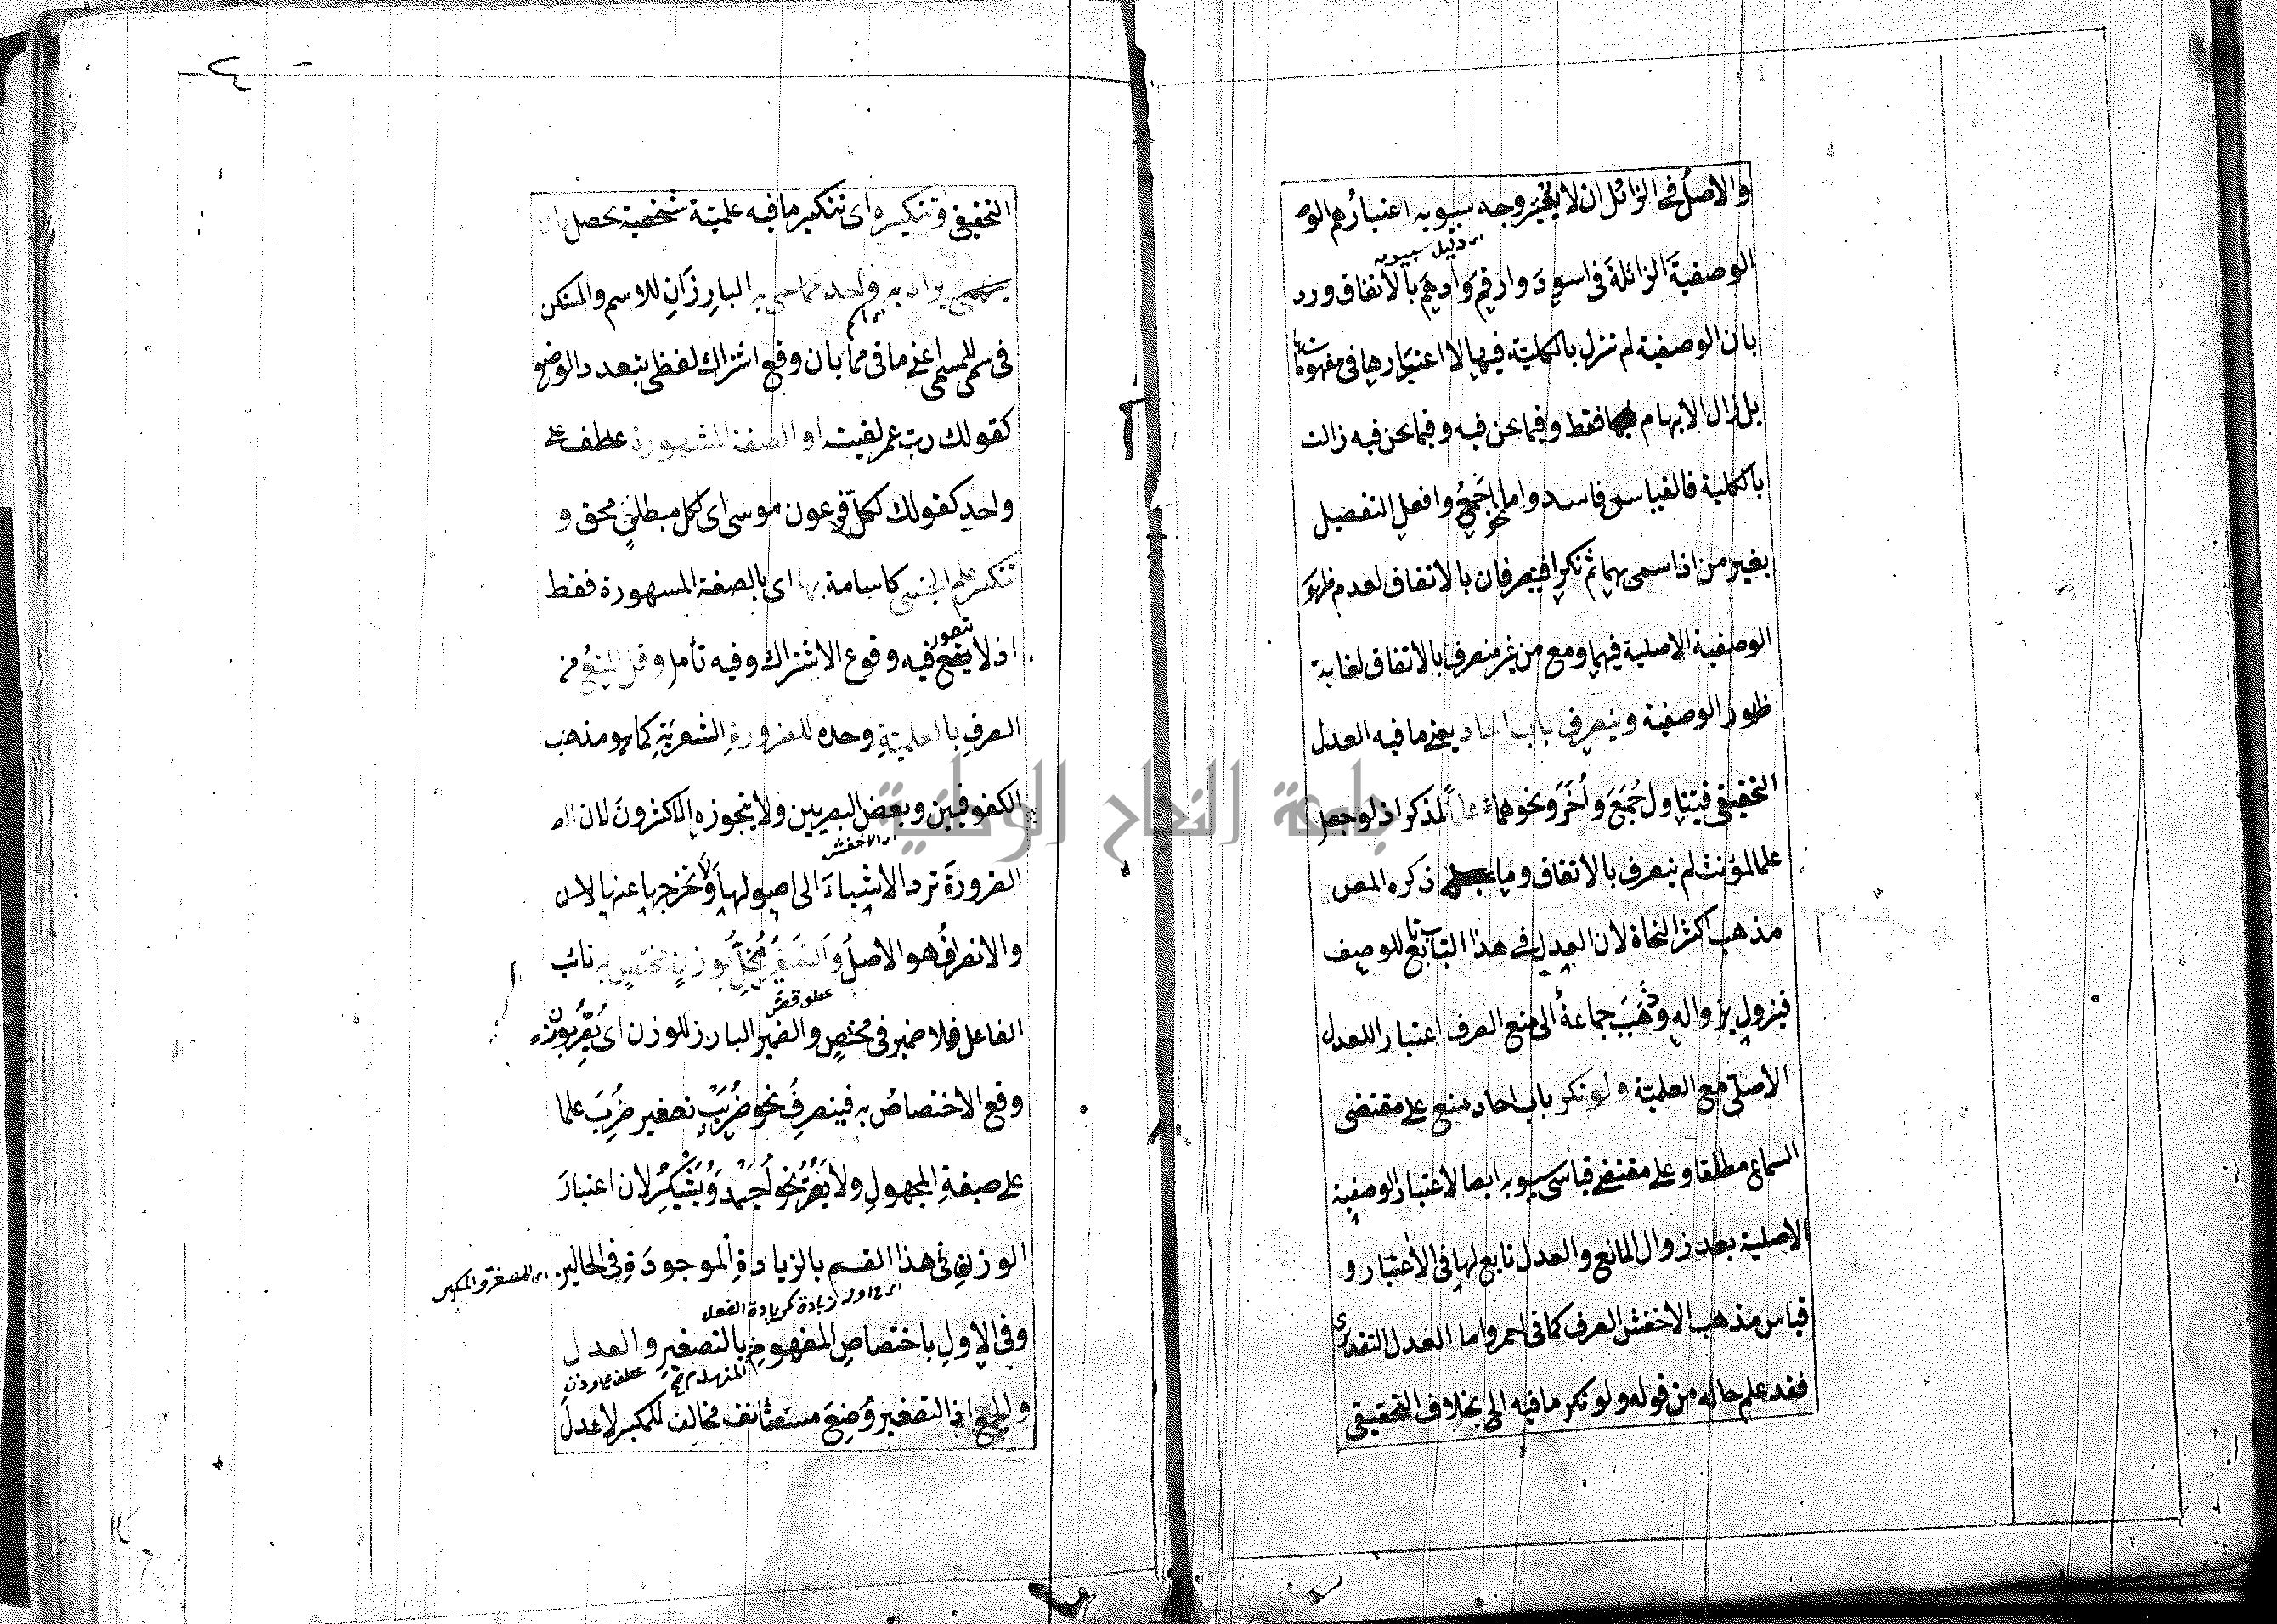 والاصل في الزائل ان لا يعتبر وجه سيبويه اعتبارهم الو
اى دليل سيبويه
الوصفية الزائلة فى اسود وارقم وادهم بالاتفاق ورد
بان الوصفية لم تزل بالكلية فيها لا اعتبارها فى مفهومات
بل زال الابهام فقط وفيما نحن فيه وفيما نحن فيه زالت
بالكلية فالقياس فاسد واما نحو اجمع وافعل التفضيل
بغير من اذا سمى بهما ثم نكرا فينصرفان بالاتفاق لعدم ظهور
الوصفية الاصلية فيهما ومع من غير منصرف بالاتفاق لغاية
ظهور الوصفية وينصرف باب احاد يعنى ما فيه العدل
التحقيقى فيتناول جمع وأخر ونحوهما علما لمذكر اذ لو جعل
علما لمؤنث لم ينصرف بالاتفاق وما ذكره المص
مذهب اكثر النحاة لان العدل في هذا الباب تابع للوصف
فيزول بزواله وذهب جماعة الى منع الصرف اعتبارا للعدل
الاصلى مع العلمية ولو نكر باب احاد منع على مقتضى
السماع مطلقا وعلى مقتضى قياس سيبويه ايضا لاعتبار الوصفية
الاصلية بعد زوال المانع والعدل تابع لها فى الاعتبار و
قياس مذهب الاخفش الصرف كما فى احمر واما العدل التقديرى
فقد علم حاله من قوله ولو نكر ما فيه الخ بخلاف التحقيقى
جامعة النجاح الوطنية
٤
التحقيقى وتنكيره اى تنكير ما فيه علمية شخصية يحصل بان
يراد به واحد مما سمى به البارزان للاسم والمتكن
فى سمى للمسمى اعنى ما فى مما بان وقع اشتراك لفظى بتعدد الوضع
كقولك رب عمر لقيته او الصفة المشهورة عطف على
واحد كقولك لكل فرعون موسى اى لكل مبطل محق و
تنكر علم الجنس كاسامة بها اى بالصفة المشهورة فقط
اذ لا يتصور فيه وقوع الاشتراك وفيه تأمل وقل المنع من
الصرف بالعلمية وحده للضرورة الشعرية كما هو مذهب
الكوفيين وبعض البصريين ولا يجوزه الاكثرون لان
اى الاخفش
الضرورة ترد الاشياء الى اصولها ولا تخرجها عنها
والانصراف هو الاصل والتصغير يخل بوزن يختص به نائب
عطف تفسير
الفاعل فلا ضمير فى مختص والضمير البارز للوزن
وقع الاختصاص به فينصرف نحو ضريب تصغير ضرب علما
على صيغة المجهول ولا يضر نحو احيمد ويشيكر لان اعتبار
الوزن فى هذا القسم بالزيادة الموجودة فى الحالين
اى المصغر والمكبر
اى اوله زيادة كزيادة الفعل
وفى الاول باختصاص المفهوم بالتصغير والعدل
وللجمع اذ التصغير وضع مستأنف مخالف للمكبر لا عدل